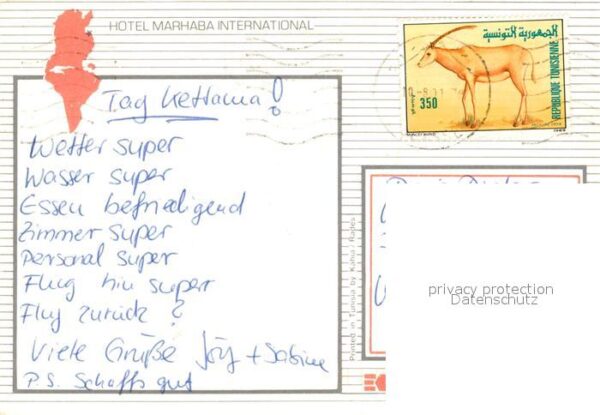 HOTEL MARHABA INTERNATIONAL
الجمهورية التونسية
REPUBLIQUE TUNISIENNE
350
Tag Kettama!
Wetter super
Wasser super
Essen befriedigend
Zimmer super
Personal super
Flug hin super
Flug zurück?
Viele Grüße Jörg + Sabine
P.S. Schaffs gut
Printed in Tunisia by Kahia / Rades
privacy protection
Datenschutz